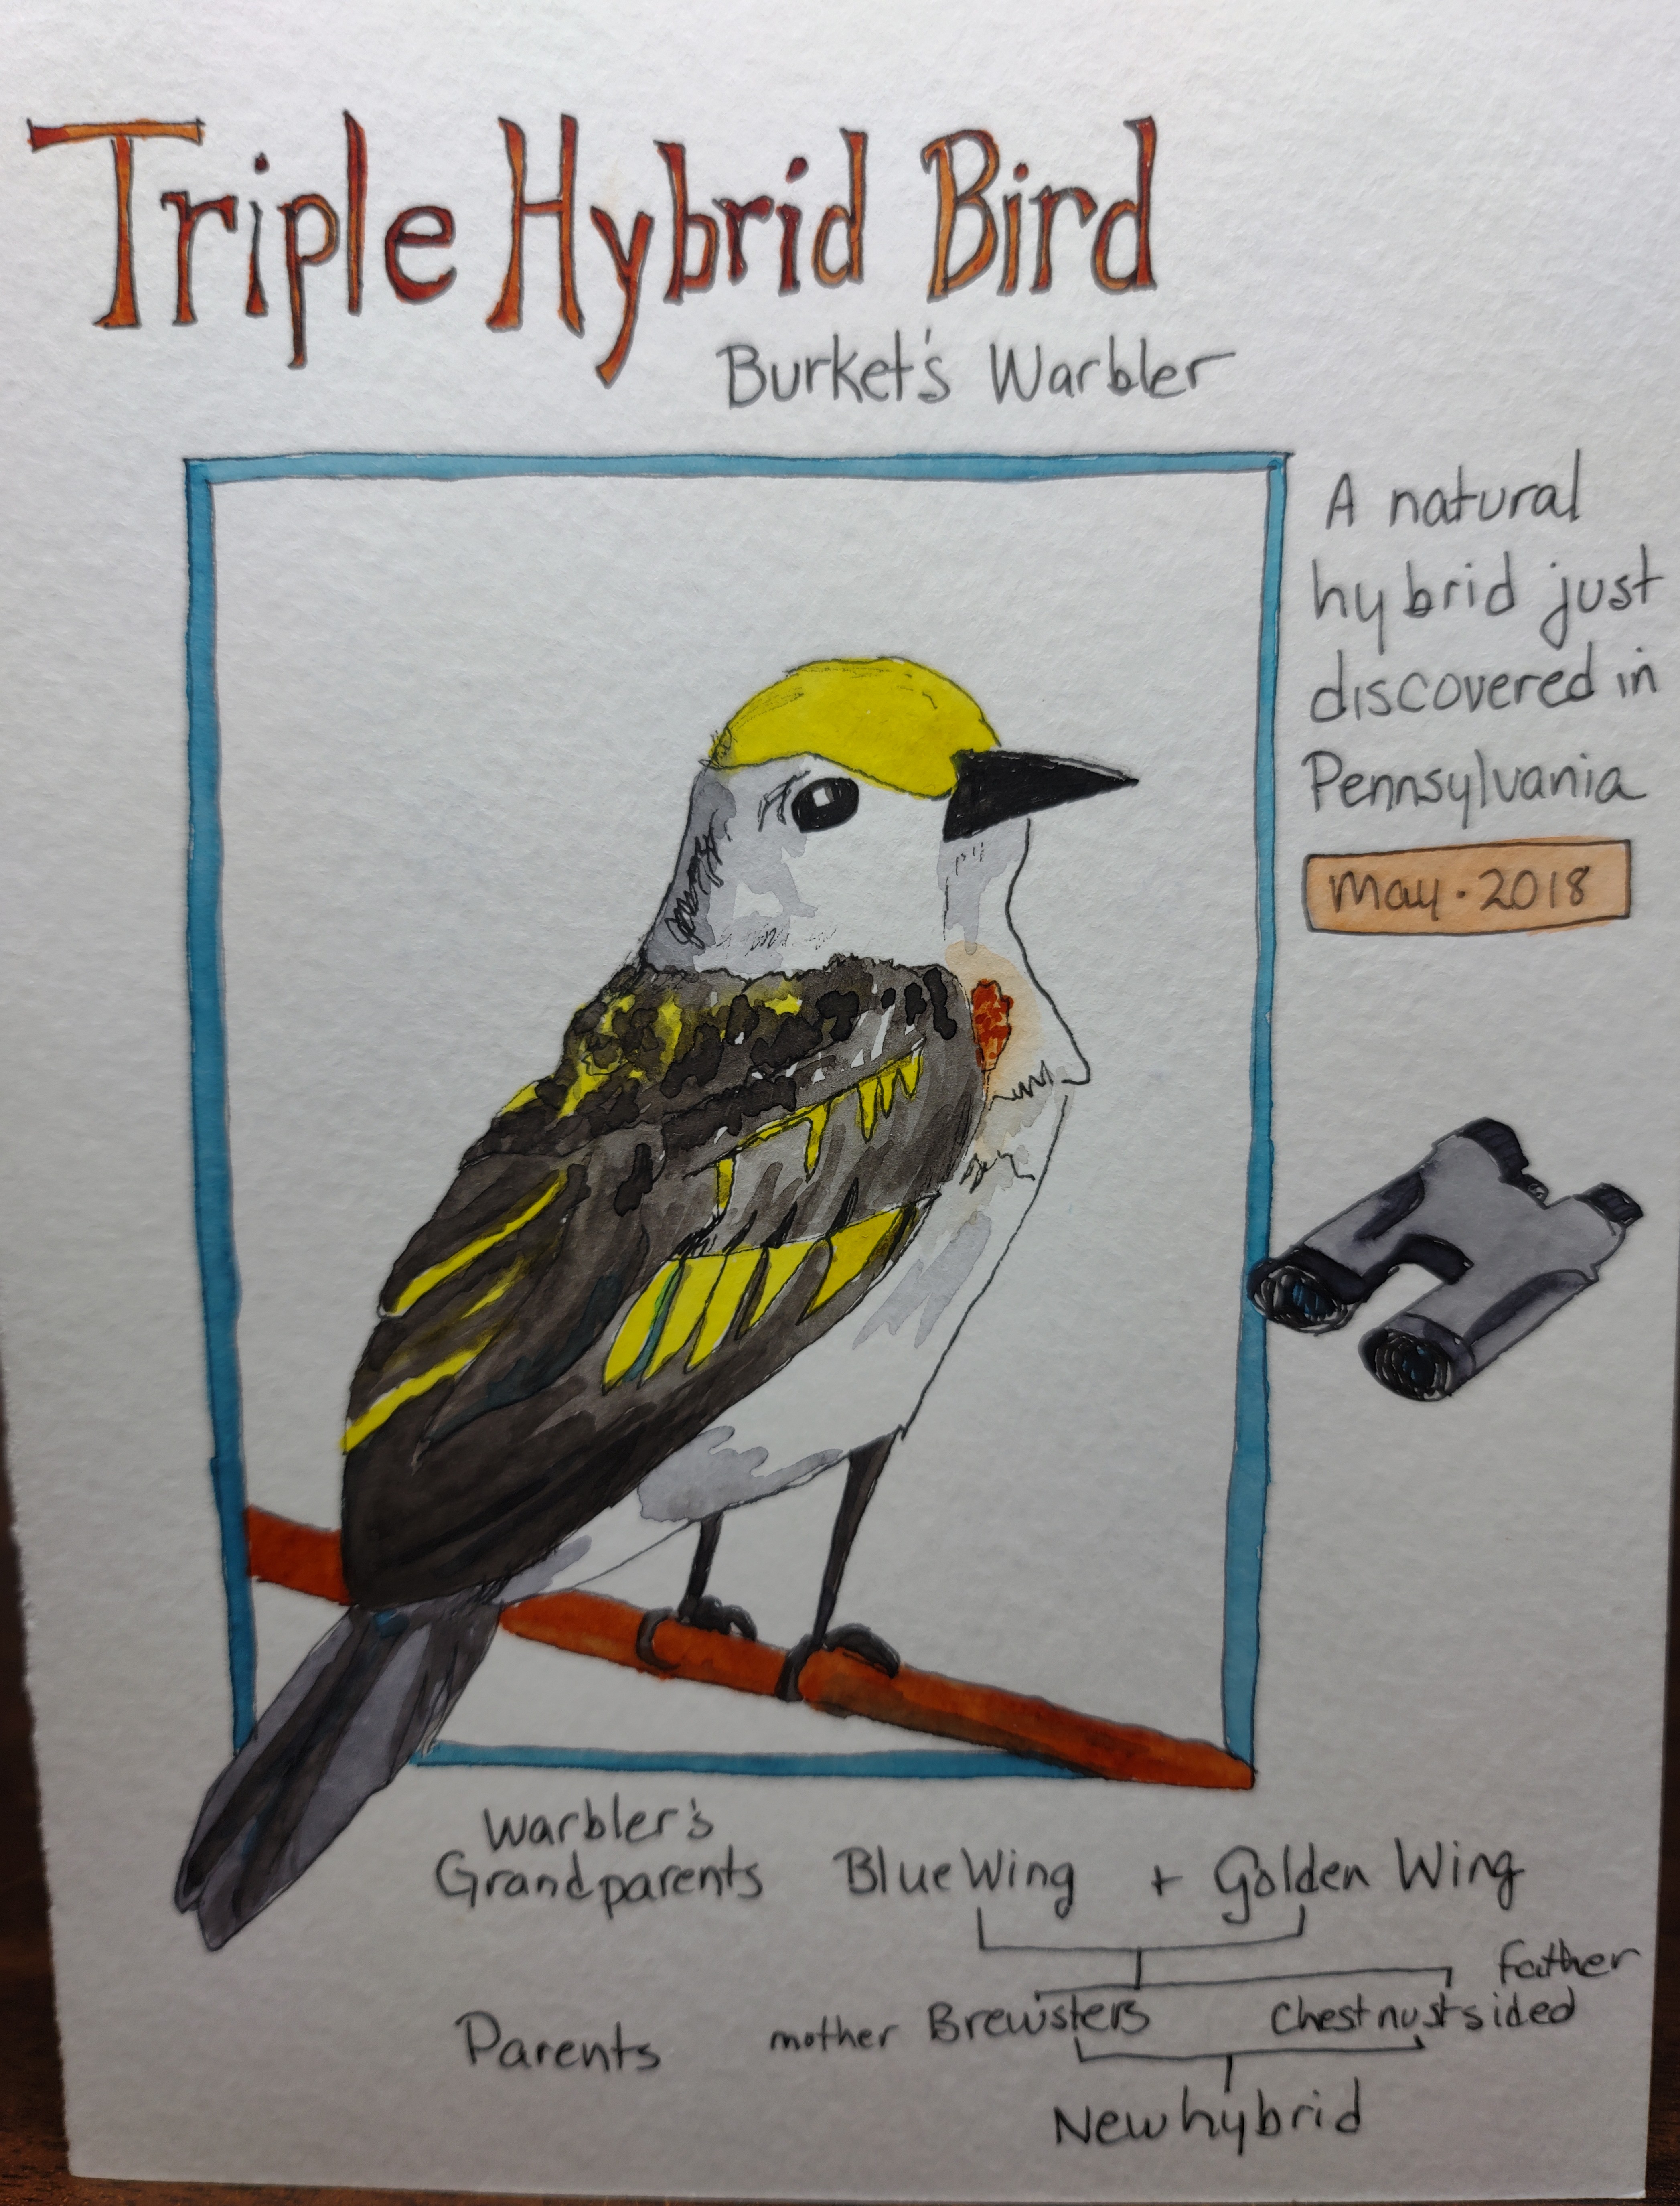 Triple Hybrid Bird
Burket's Warbler
A natural
hybrid just
discovered in
Pennsylvania
May · 2018
Warbler's
Grandparents Blue Wing + Golden Wing
father
Parents mother Brewsters Chestnut sided
New hybrid